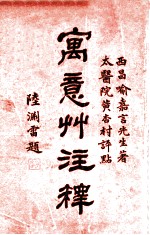 西昌喻嘉言先生著
太醫院黃杏村評點
寓意艸注釋
陸淵雷題